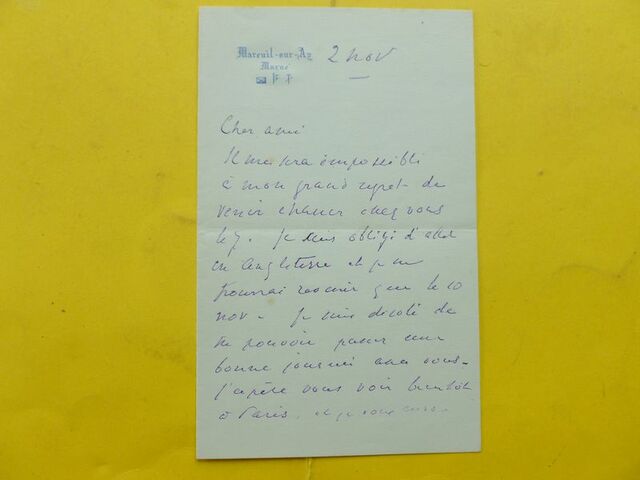 Mareuil-sur-Ay
Marne
2 nov
Cher ami
Il me sera impossible
à mon grand regret de
venir chasser chez vous
le 7. Je suis obligé d'aller
en Angleterre et je ne
pourrai revenir que le 10
nov. Je suis désolé de
ne pouvoir passer une
bonne journée avec vous.
J'espère vous voir bientôt
à Paris, et je vous